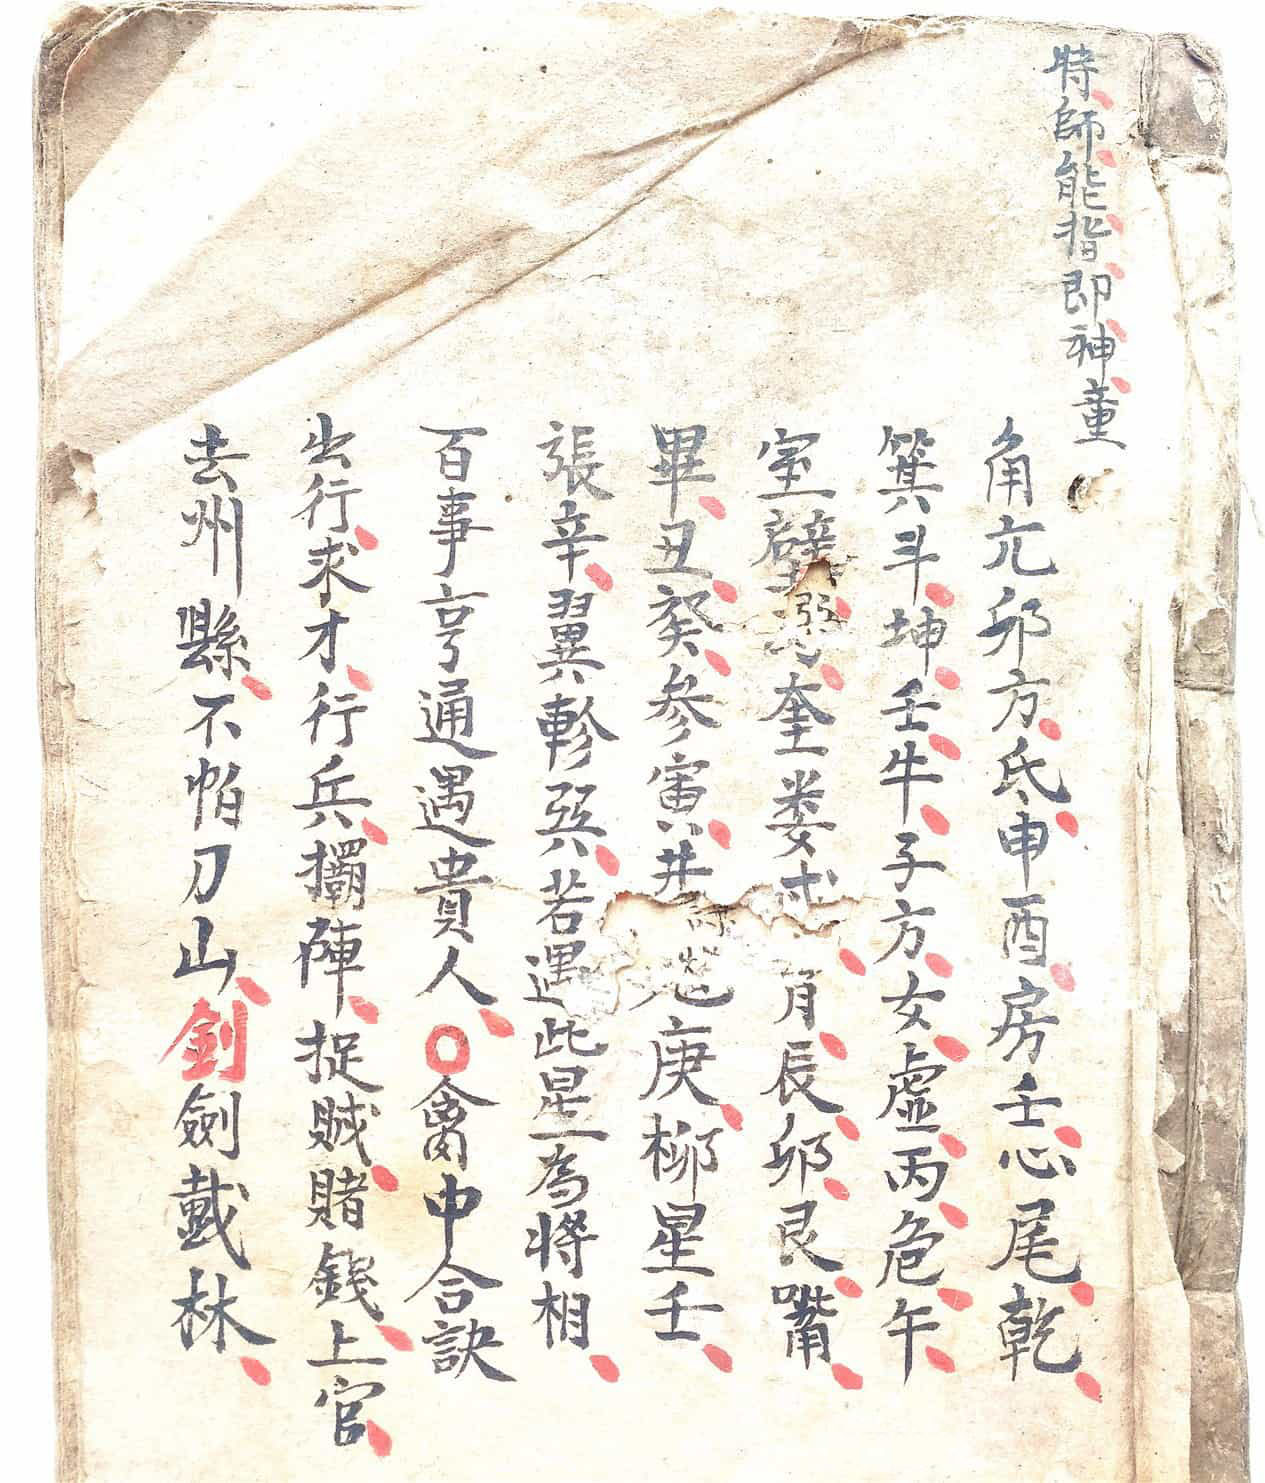 時師能指即神童
角亢卯方氐申酉房壬心尾乾
箕斗坤壬牛子方女虛丙危午
室壁奎娄戌辰卯艮嘴
畢丑癸参寅井庚柳星壬
張辛翼軫巽若遇此星為將相
百事亨通遇貴人〇禽中合訣
出行求才行兵擺陣捉賊賭錢上官
去州縣不怕刀山釗劍戴林